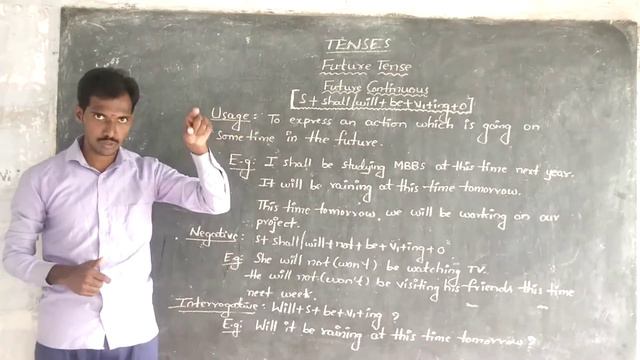 TENSES
Future Tense
Future Continuous
[S + shall/will + be + V₁ + ing + O]
Usage: To express an action which is going on
some time in the future.
E.g: I shall be studying MBBS at this time next year.
It will be raining at this time tomorrow.
This time tomorrow, we will be working on our
project.
Negative: S + shall/will + not + be + V₁ + ing + O
Eg: She will not (won't) be watching TV.
He will not (won't) be visiting his friends this time
next week.
Interrogative: Will + S + be + V₁ + ing ?
E.g: Will it be raining at this time tomorrow?